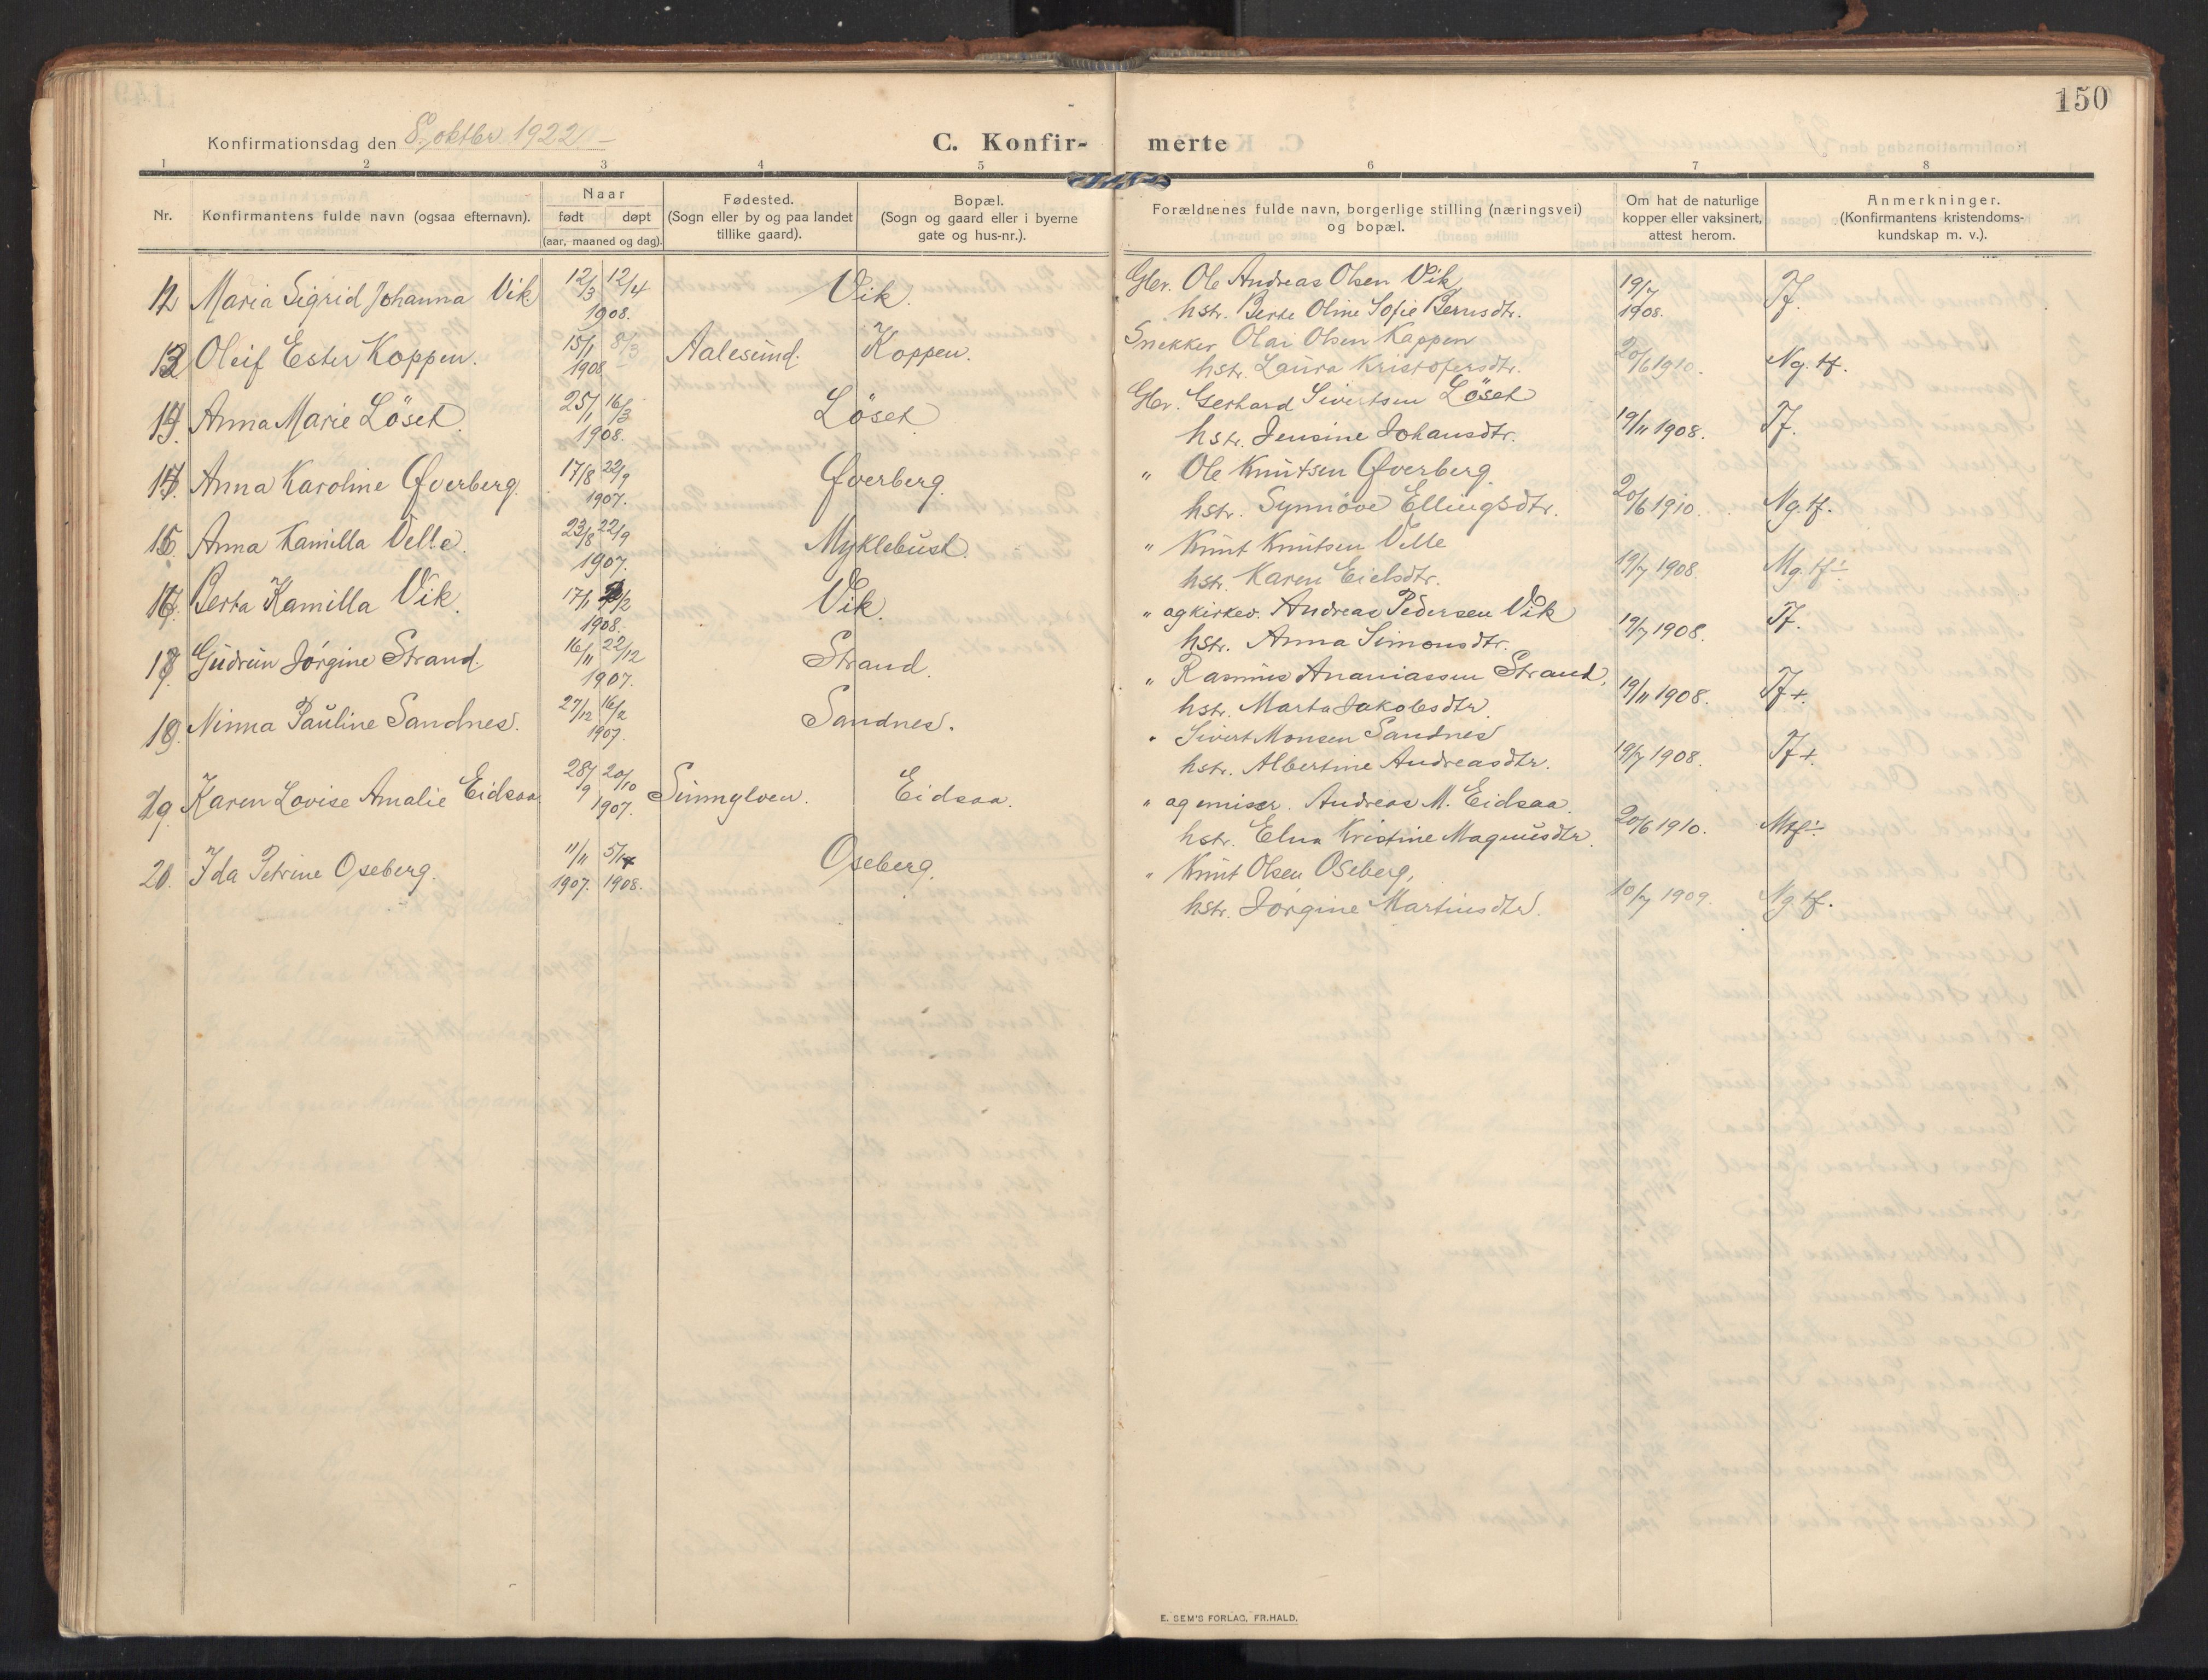 150
Konfirmationsdag den 8. oktbr 1922
C. Konfirmerte
1 2 3 4 5 6 7 8
Nr. Konfirmantens fulde navn (ogsaa efternavn). Naar født døpt (aar, maaned og dag). Fødested. (Sogn eller by og paa landet tillike gaard). Bopæl. (Sogn og gaard eller i byerne gate og hus-nr.). Forældrenes fulde navn, borgerlige stilling (næringsvei) og bopæl. Om hat de naturlige kopper eller vaksinert, attest herom. Anmerkninger. (Konfirmantens kristendomskundskap m. v.).
12 Maria Sigrid Johanna Vik 12/3 12/4 1908. Vik. Gbr. Ole Andreas Olsen Vik 19/7 1908. Tf.
hstr. Berte Oline Sofie Bernsdtr.
13. Oleif Ester Koppen. 15/1 8/3 1908 Aalesund. Koppen. Snekker Olai Olsen Koppen 20/6 1910. Ng. tf.
hstr. Laura Kristofersdtr.
14. Anna Marie Löset. 25/1 16/3 1908. Löset Gbr. Gerhard Sivertsen Löset 19/11 1908. Tf.
hstr. Jensine Johansdtr.
Anna Karoline Øverberg. 17/8 22/9 1907. Øverberg. " Ole Knutsen Øverberg. 20/6 1910. Ng. tf.
hstr. Synnöve Ellingsdtr.
15. Anna Kamilla Velle. 23/8 22/9 1907. Myklebust. " Knut Knutsen Velle 19/7 1908. Mg. tf÷
hstr. Karen Eielsdtr.
16. Berta Kamilla Vik. 17/1 /2 1908. Vik. " og kirkev. Andreas Pedersen Vik 19/7 1908. Tf.
hstr. Anna Simonsdtr.
Gudrun Jørgine Strand. 16/11 22/12 1907. Strand. " Rasmus Ananiassen Strand, 19/11 1908. Tf+
hstr. Marta Jakobsdtr.
Ninna Pauline Sandnes. 27/12 16/2 1907. Sandnes. " Sivert Monsen Sandnes 19/7 1908. Tf+.
hstr. Albertine Andreasdtr.
19. Karen Lovise Amalie Eidsaa. 28/9 20/10 1907. Sunnylven. Eidsaa. " og emisær. Andreas M. Eidsaa. 20/6 1910. Mtf÷
hstr. Elna Kristine Magnusdtr.
20. Ida Petrine Oseberg. 11/11 1907. 5/1 1908. Oseberg. " Knut Olsen Oseberg, 10/7 1909. Ng. tf.
hstr. Jørgine Martinsdtr.
E. SEM'S FORLAG, FR.HALD.